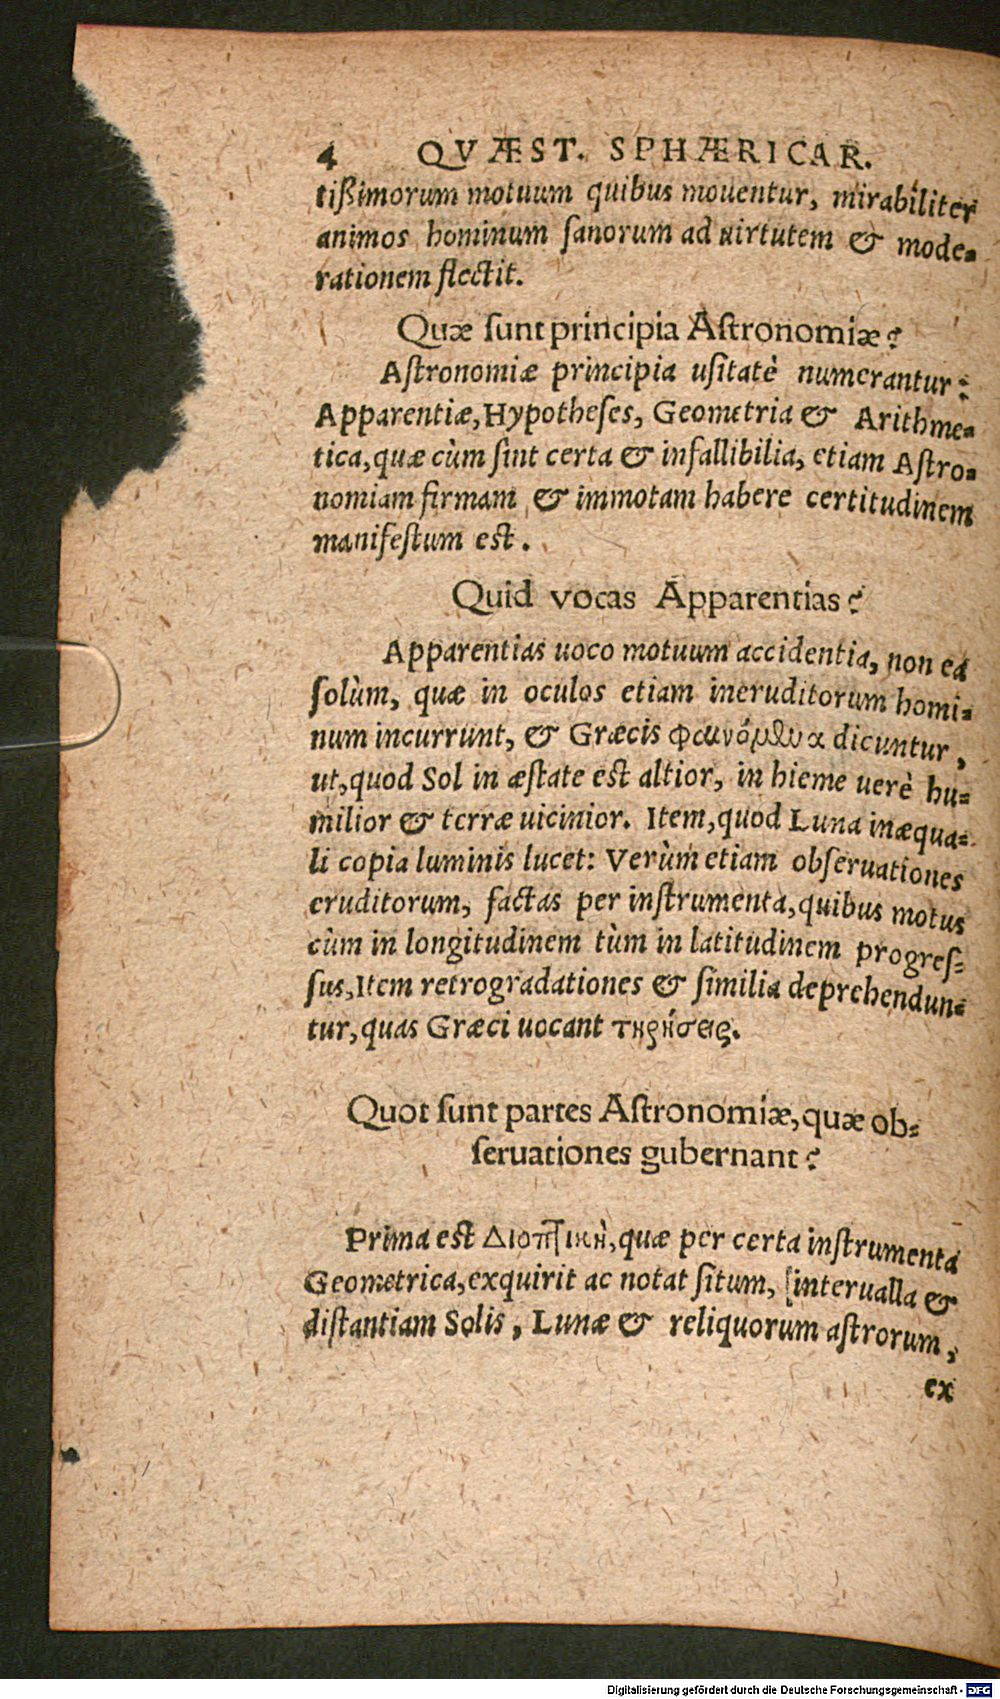 4 QVÆST. SPHÆRICAR.
tißimorum motuum quibus mouentur, mirabiliter
animos hominum ſanorum ad uirtutem & mode-
rationem flectit.
Quæ ſunt principia Aſtronomiæ?
Aſtronomiæ principia uſitatè numerantur:
Apparentiæ, Hypotheſes, Geometria & Arithme-
tica, quæ cùm ſint certa & infallibilia, etiam Aſtro-
nomiam firmam & immotam habere certitudinem
manifeſtum est.
Quid vocas Apparentias?
Apparentias uoco motuum accidentia, non ea
ſolùm, quæ in oculos etiam ineruditorum homi-
num incurrunt, & Græcis φαινόμενα dicuntur,
ut, quod Sol in æſtate est altior, in hieme uerè hu-
milior & terræ uicinior. Item, quod Luna inæqua-
li copia luminis lucet: Verùm etiam obſeruationes
eruditorum, factas per inſtrumenta, quibus motus
cùm in longitudinem tùm in latitudinem progreſ-
ſus, Item retrogradationes & ſimilia deprehendun-
tur, quas Græci uocant τηρήσεις.
Quot ſunt partes Aſtronomiæ, quæ ob-
ſeruationes gubernant?
Prima est Διοπτικὴ, quæ per certa inſtrumenta
Geometrica, exquirit ac notat ſitum, [interualla &
diſtantiam Solis, Lunæ & reliquorum aſtrorum,
ex
Digitalisierung gefördert durch die Deutsche Forschungsgemeinschaft - DFG